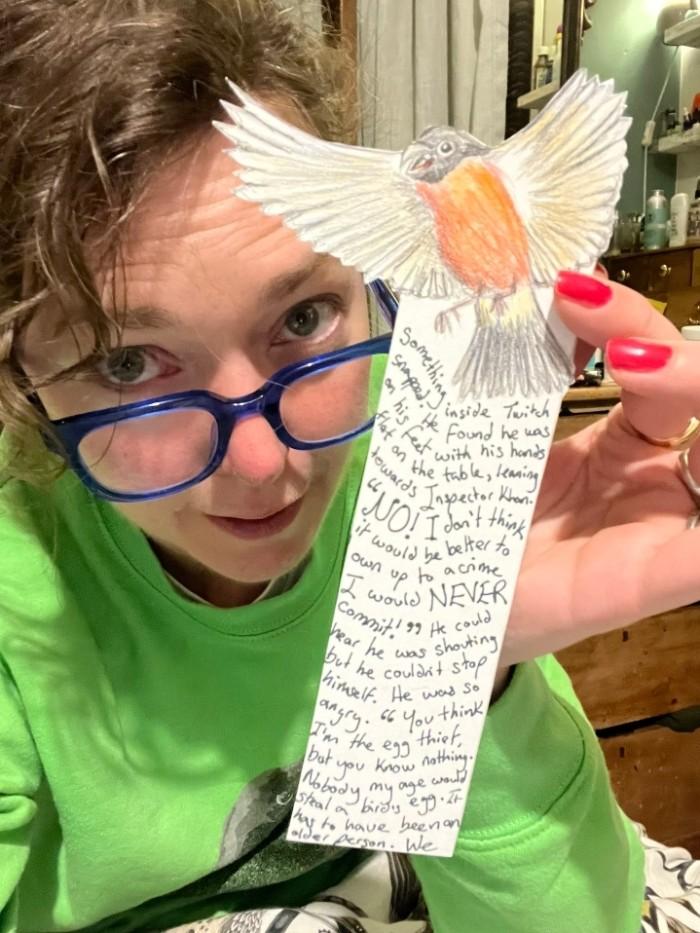 Something
snapped inside Twitch
He found he was
on his feet with his hands
flat on the table, leaning
towards Inspector Khan.
“NO! I don't think
it would be better to
own up to a crime
I would NEVER
commit!” He could
hear he was shouting
but he couldn't stop
himself. He was so
angry. “You think
I'm the egg thief,
but you know nothing.
Nobody my age would
steal a birds egg. It
has to have been an
older person. We